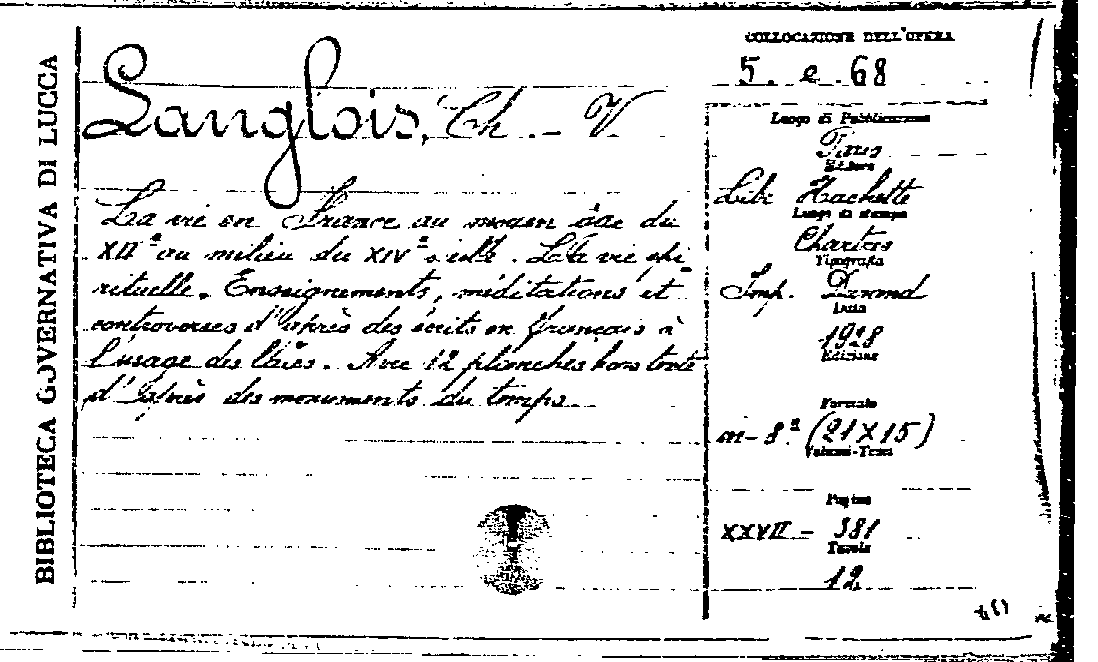 BIBLIOTECA GOVERNATIVA DI LUCCA
Langlois, Ch. - V
La vie en France au moyen âge du
XII° au milieu du XIV° siècle. La vie spi-
rituelle. Enseignements, méditations et
controverses d'après des écrits en français à
l'usage des laïcs. Avec 12 planches hors texte
d'après des monuments du temps.
COLLOCAZIONE DELL'OPERA
5. e. 68
Luogo di Pubblicazione
Paris
Editore
Libr Hachette
Luogo di stampa
Chartres
Tipografia
Imp. Durand
Data
1928
Edizione
Formato
in-8.° (21X15)
Volumi-Tomi
Pagine
XXVII - 381
Tavole
12